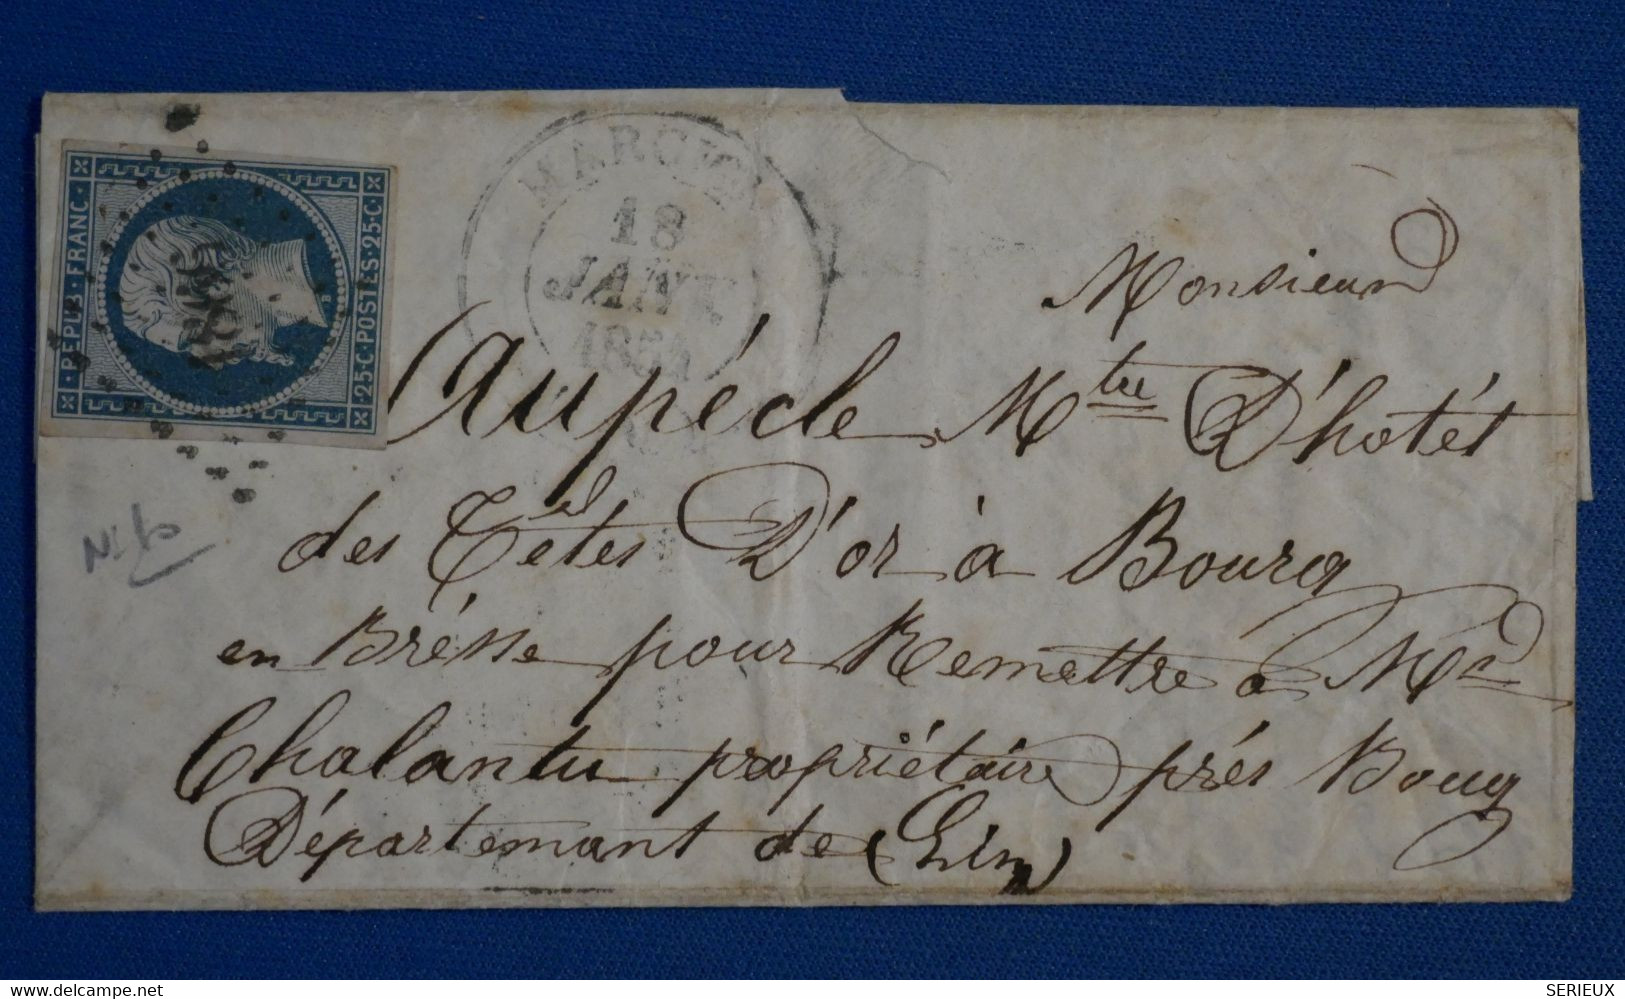 REPUB·FRANC·
25·C·POSTES·25·C·
B
18
JANV
Monsieur
Aupécle Mtre D'hotél
des Tétes D'or à Bourg
en Brésse pour Remettre a Mr
Chalantu propriétaire prés Boug
Départemant de (Lin)
Delcampe.net
SERIEUX